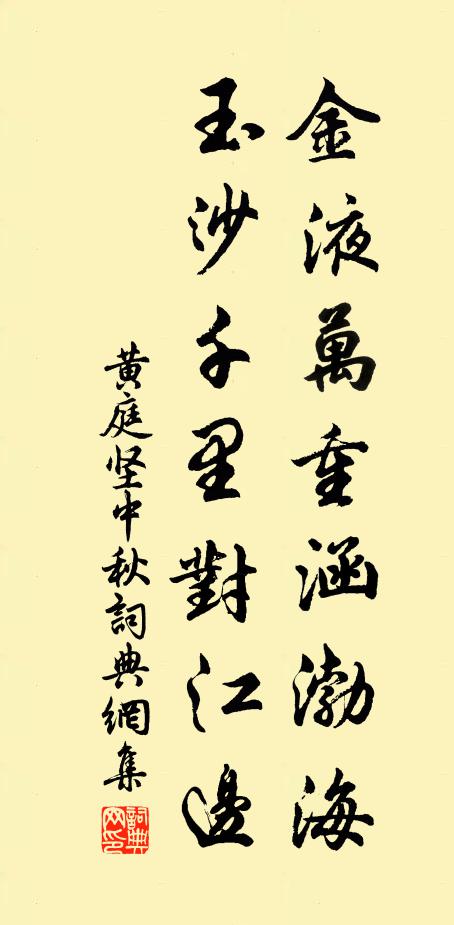 金液萬重涵渤海
玉沙千里對江邊
黃庭坚中秋詞典網集
詞典网印